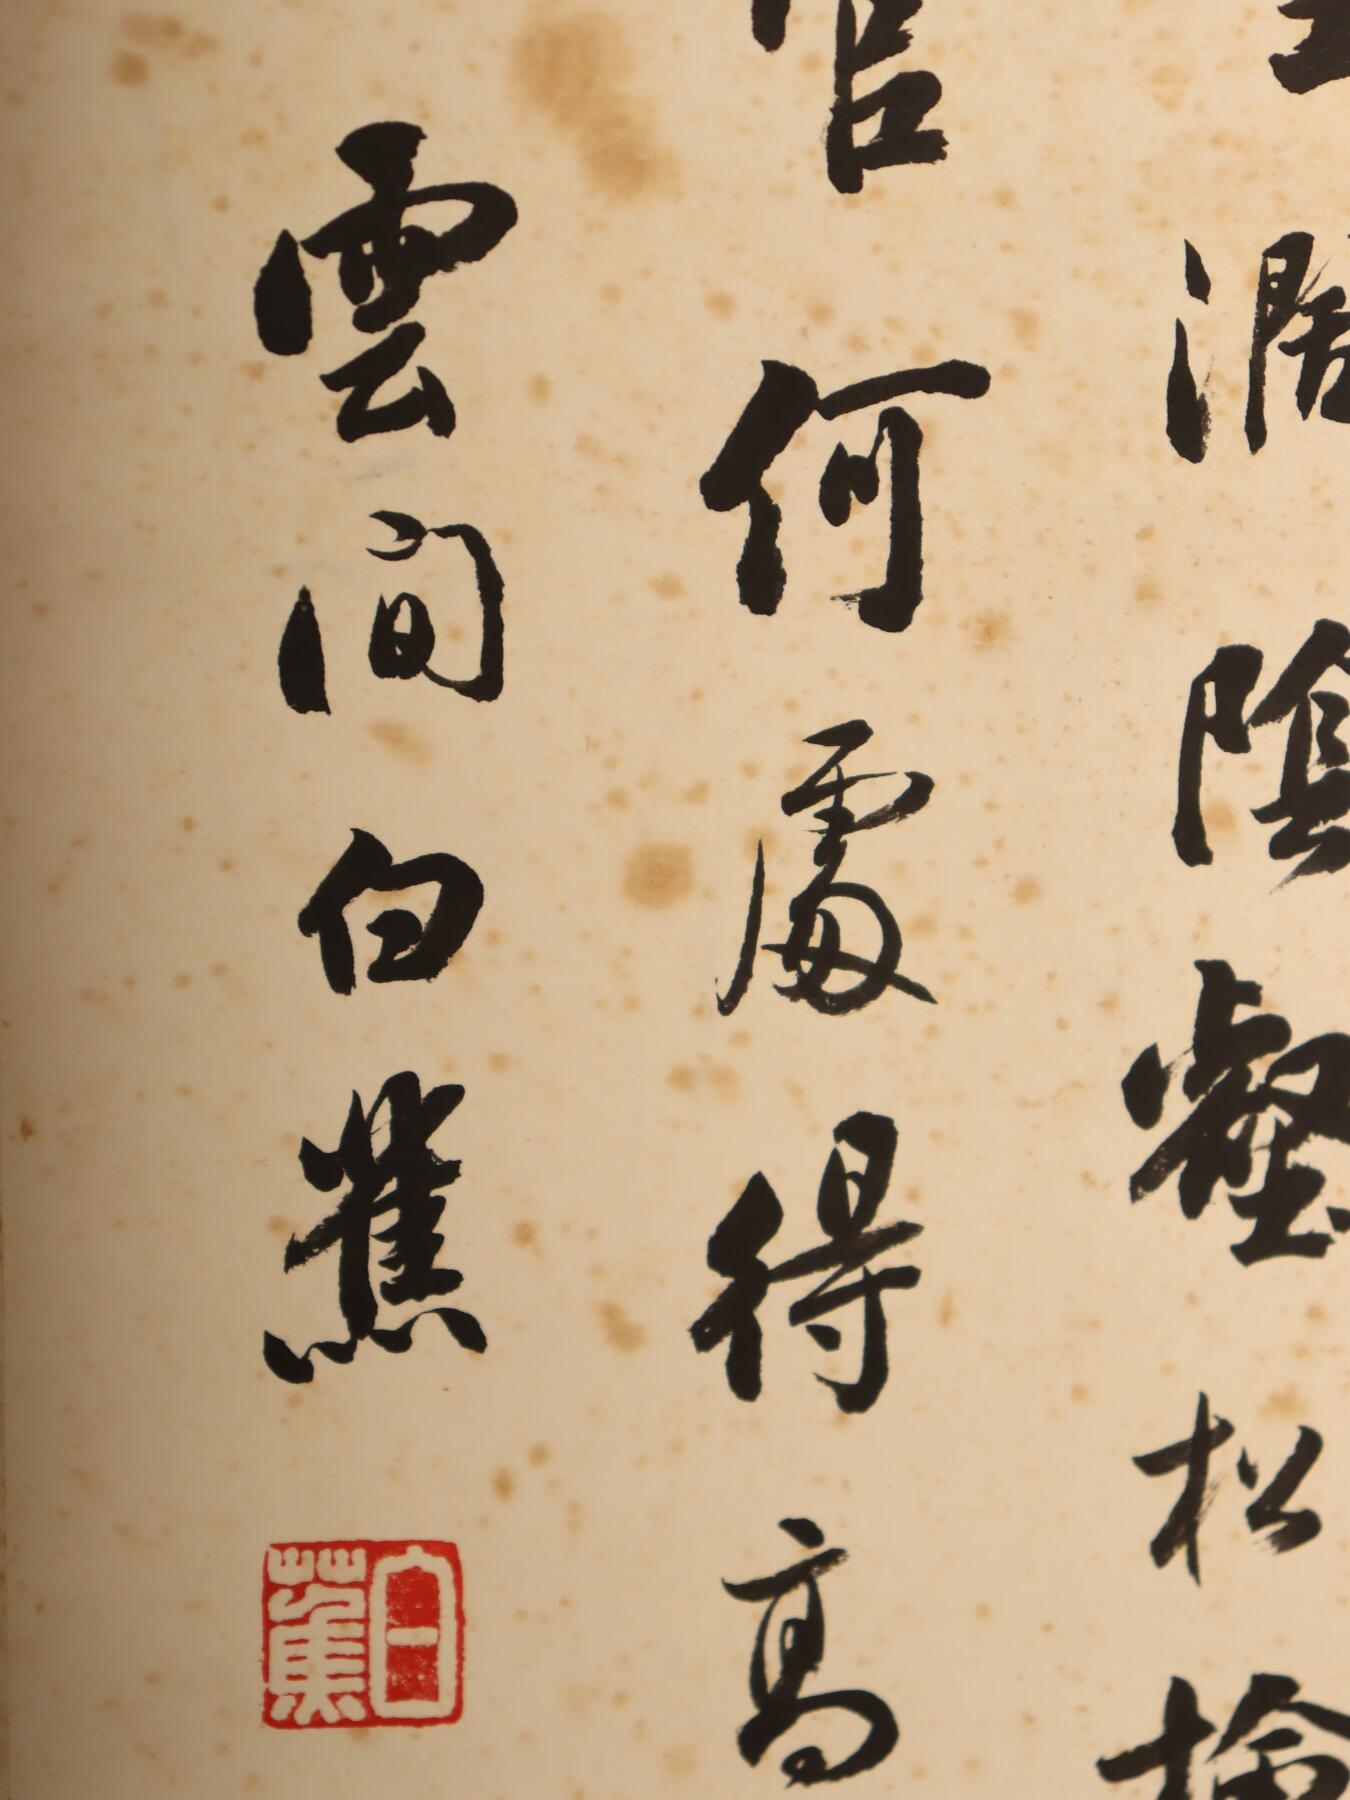 濶陰壑松
何處得高
雲間白蕉
白蕉